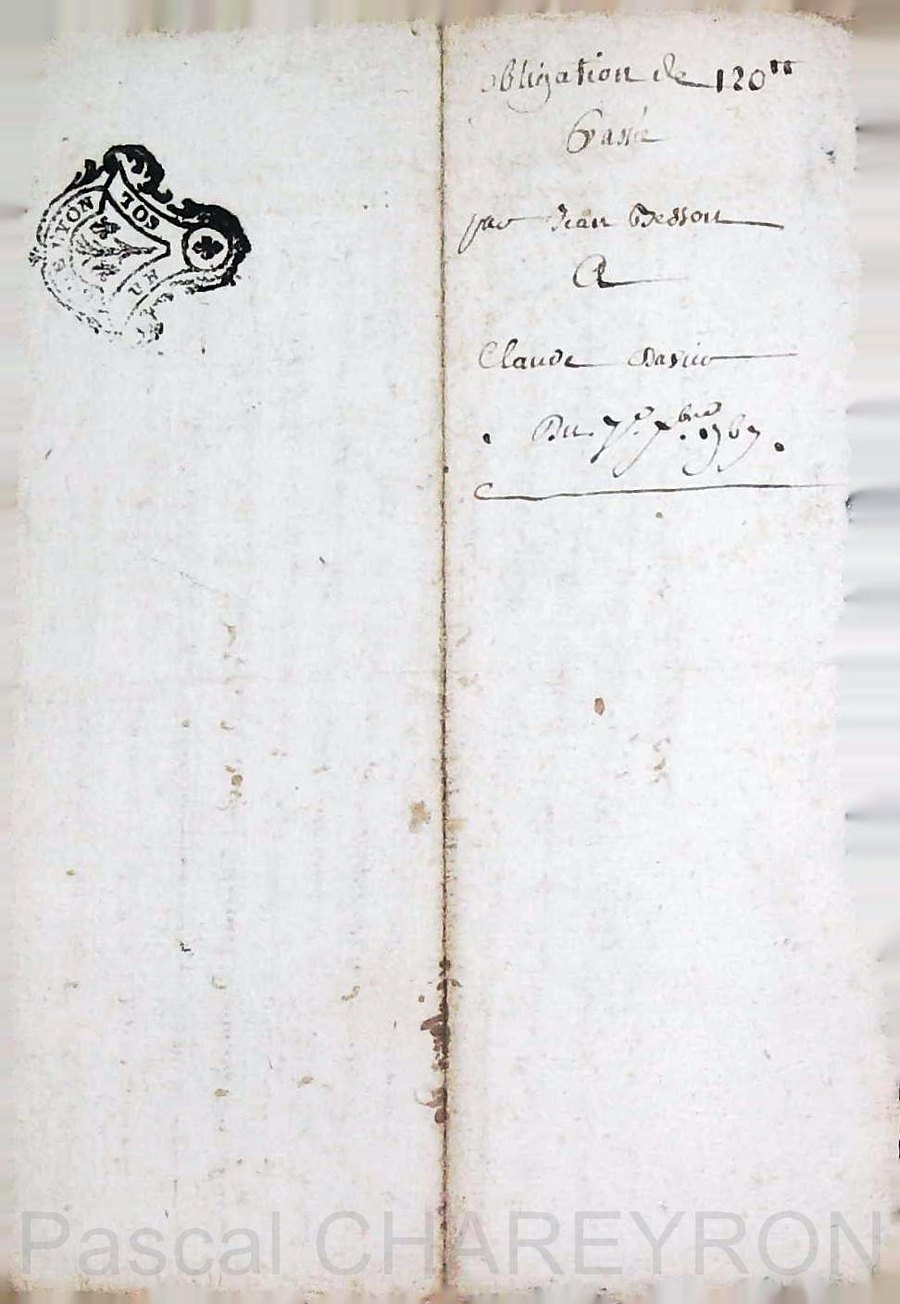 LYON
SOL
obligation de 120  tt
Passé
par Jean Besson
A
Claude
Du 7e 7bre 1767.
Pascal CHAREYRON